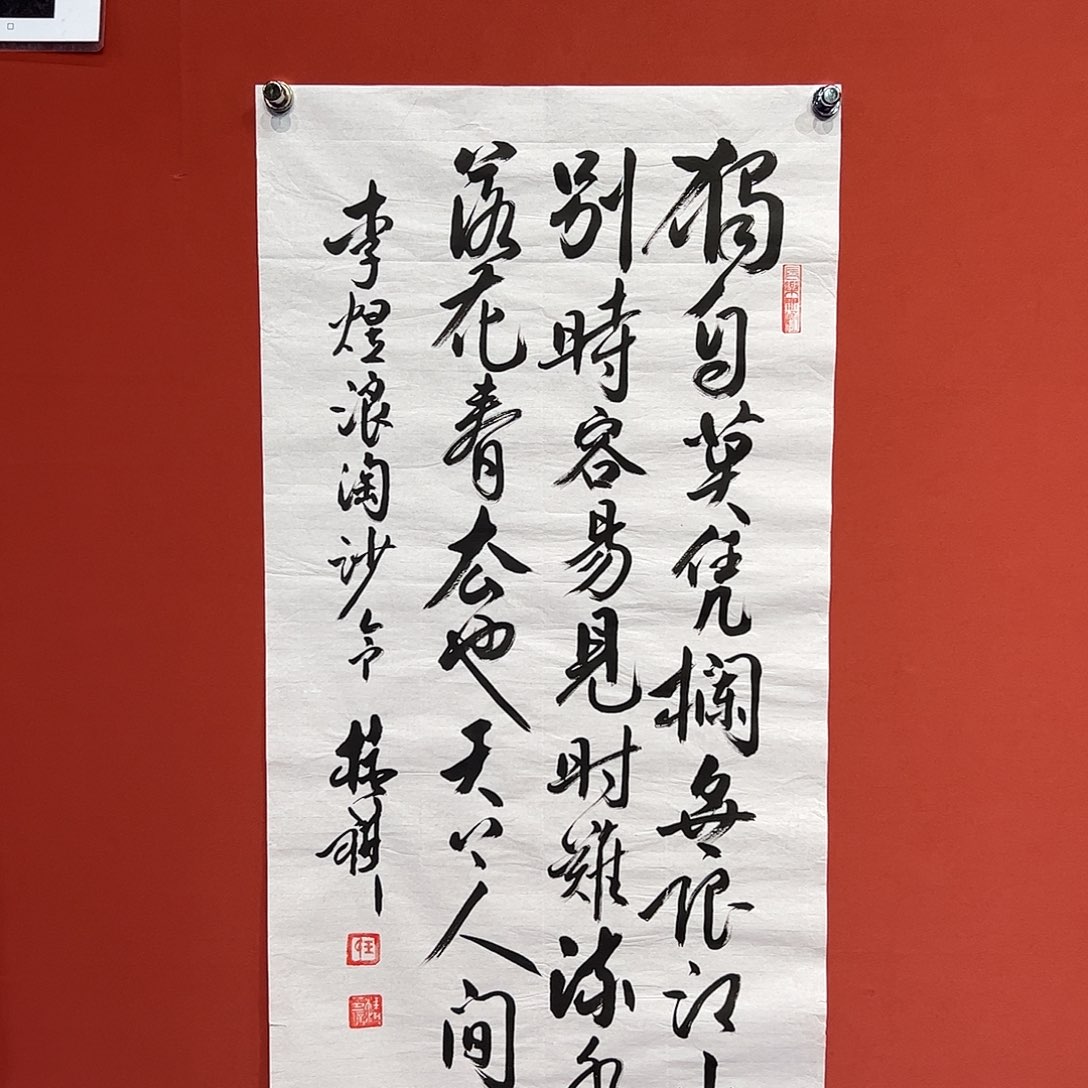 獨自莫凭欄無限江
別時容易見时難流水
落花春去也天上人间
李煜浪淘沙令